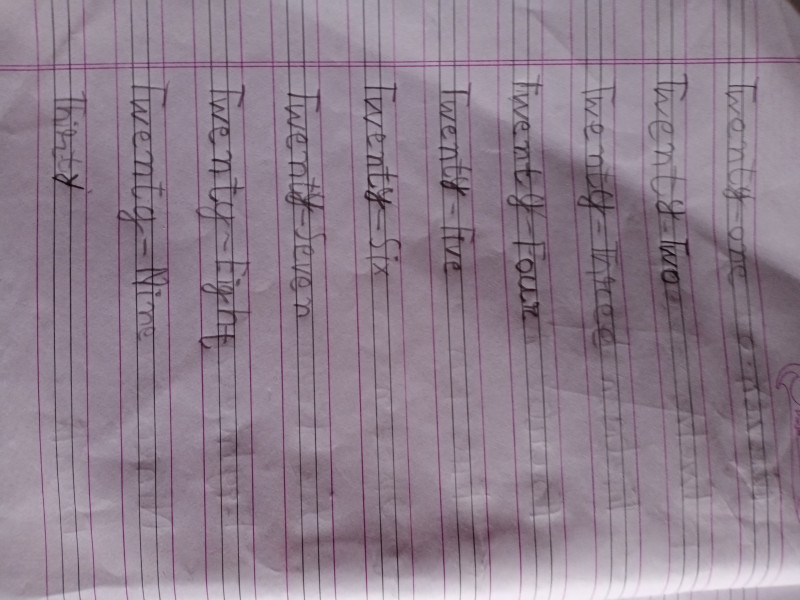 Twenty-one
Twenty-Two
Twenty-Three
Twenty-Four
Twenty-Five
Twenty-Six
Twenty-Seven
Twenty-Eight
Twenty-Nine
Thirty